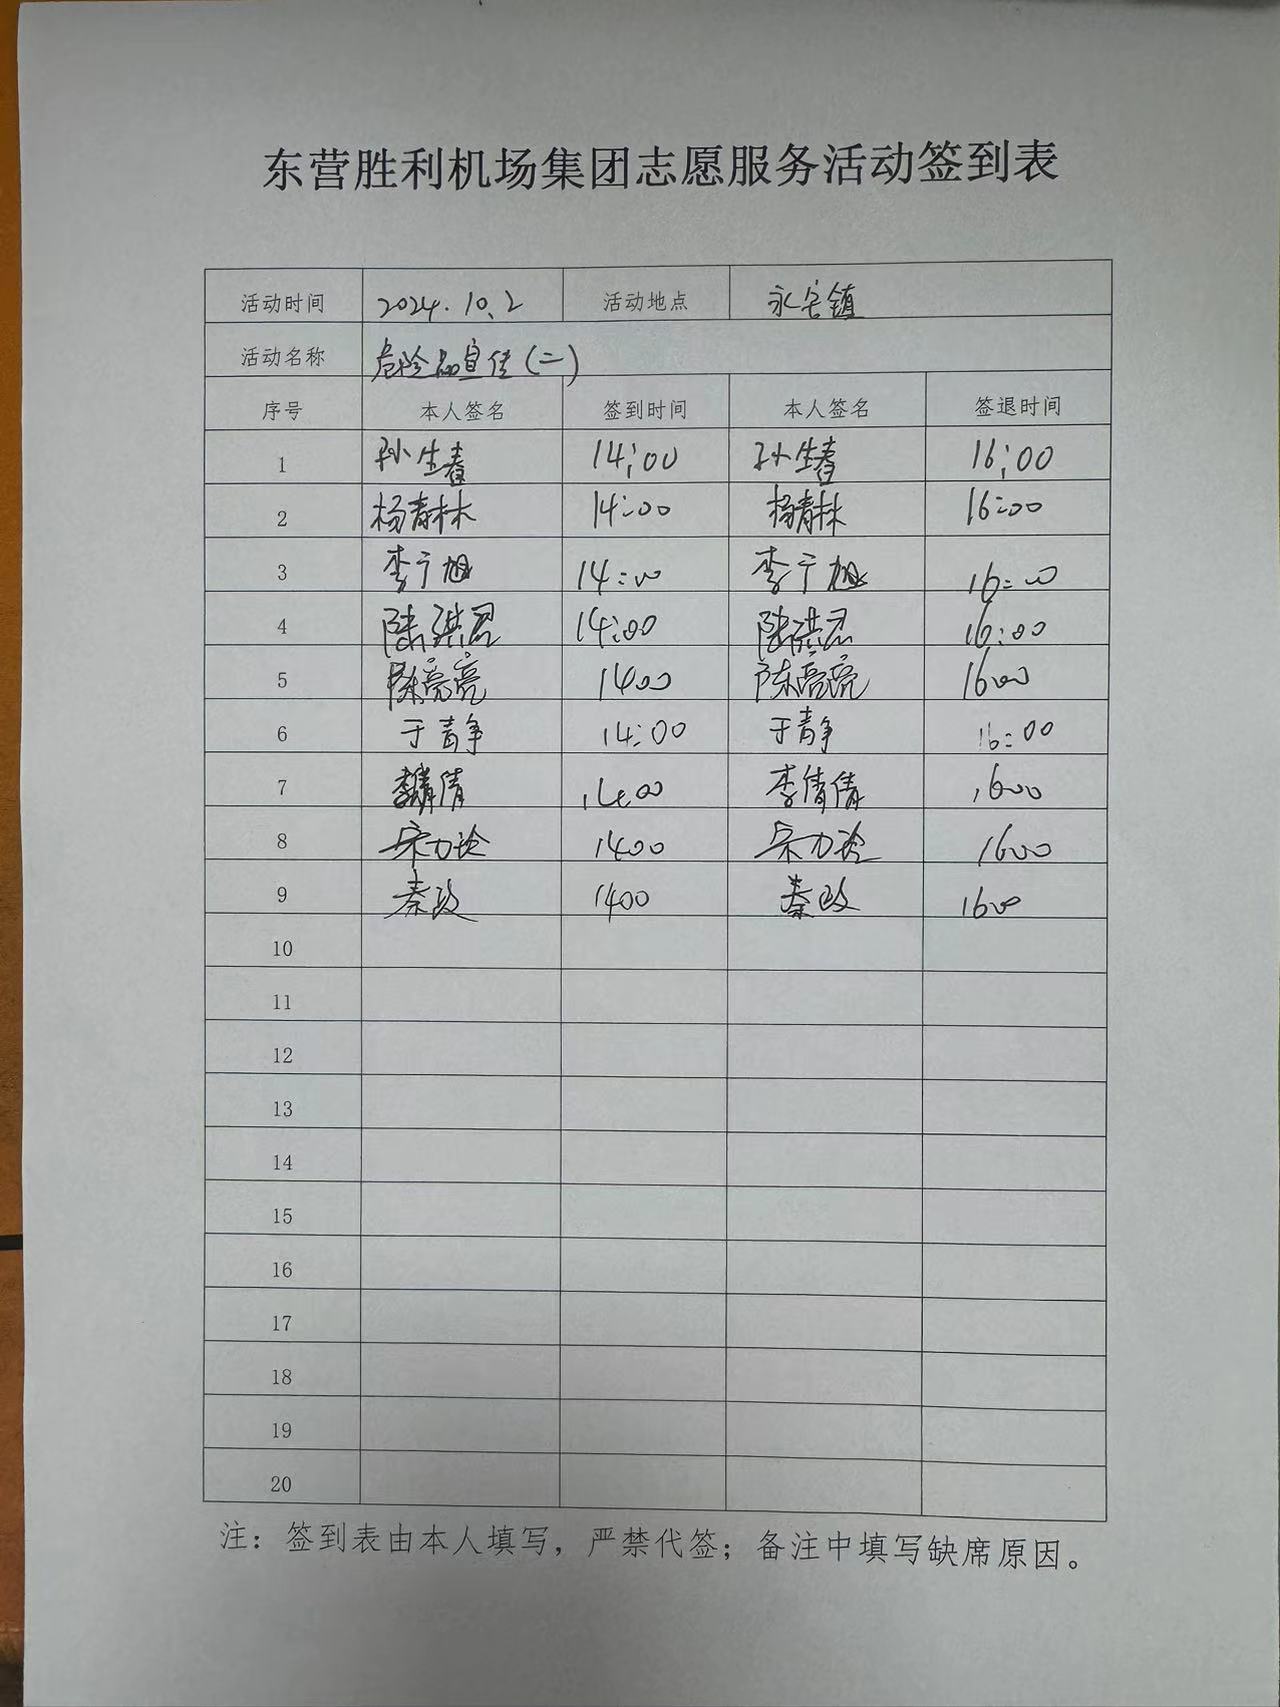 东营胜利机场集团志愿服务活动签到表
活动时间 2024.10.2 活动地点 永安镇
活动名称 危险品宣传(二)
序号 本人签名 签到时间 本人签名 签退时间
1 孙生春 14:00 孙生春 16:00
2 杨青林 14:00 杨青林 16:00
3 李宁旭 14:00 李宁旭 16:00
4 陆琪君 14:00 陆琪君 16:00
5 陈亮亮 1400 陈亮亮 1600
6 于静 14:00 于静 16:00
7 李倩倩 14:00 李倩倩 1600
8 1400 1600
9 秦政 1400 秦政 1600
10
11
12
13
14
15
16
17
18
19
20
注：签到表由本人填写，严禁代签；备注中填写缺席原因。